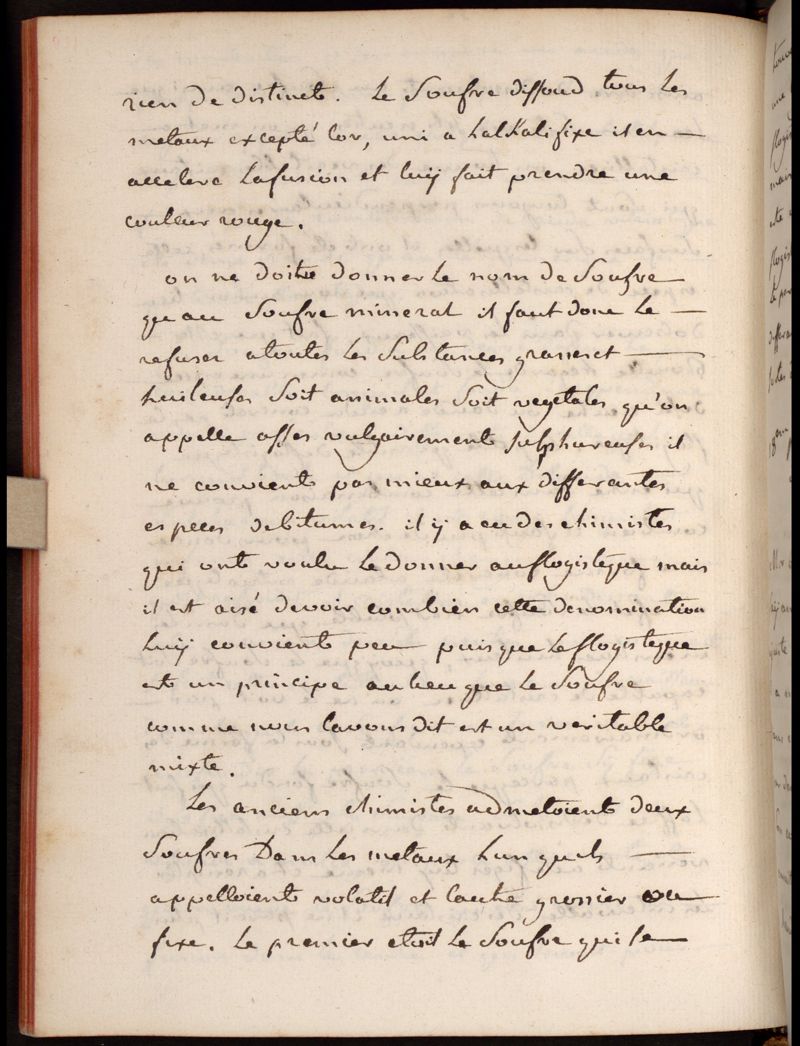 rien de distinct. Le Soufre dissoud tous les
metaux excepté lor, uni a Lalkali fixe il en —
accelere Lafusion et luy fait prendre une
couleur rouge.
on ne doit donner le nom de Soufre
quau Soufre mineral il faut donc le —
refuser atoutes les Substances grasses et —
huileuses Soit animales Soit vegetales qu'on
appelle asses vulgairement sulphureuses il
ne convient pas mieux aux differantes
especes debitumes. il y a eu des chimistes
qui ont voulu Ledonner auflogistique mais
il est aisé devoir combien cette denomination
Luy convient peu puis que Leflogistique
est un principe aulieu que Le Soufre
comme nous lavons dit est un veritable
mixte.
Les anciens chimistes admetoient deux
Soufres Dans Les metaux Lun quils —
appelloient volatil et lautre grossier ou
fixe. Le premier etoit Le Soufre qui se —